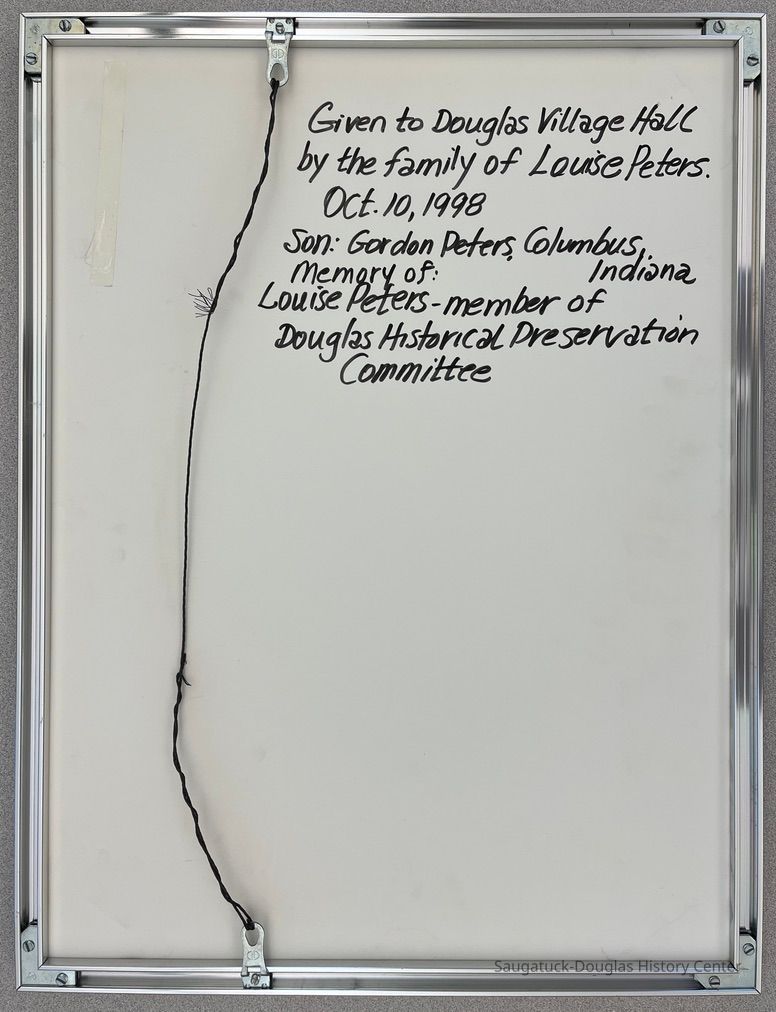 Given to Douglas Village Hall
by the family of Louise Peters.
Oct. 10, 1998
Son: Gordon Peters, Columbus,
Indiana
Memory of:
Louise Peters - member of
Douglas Historical Preservation
Committee
Saugatuck-Douglas History Center